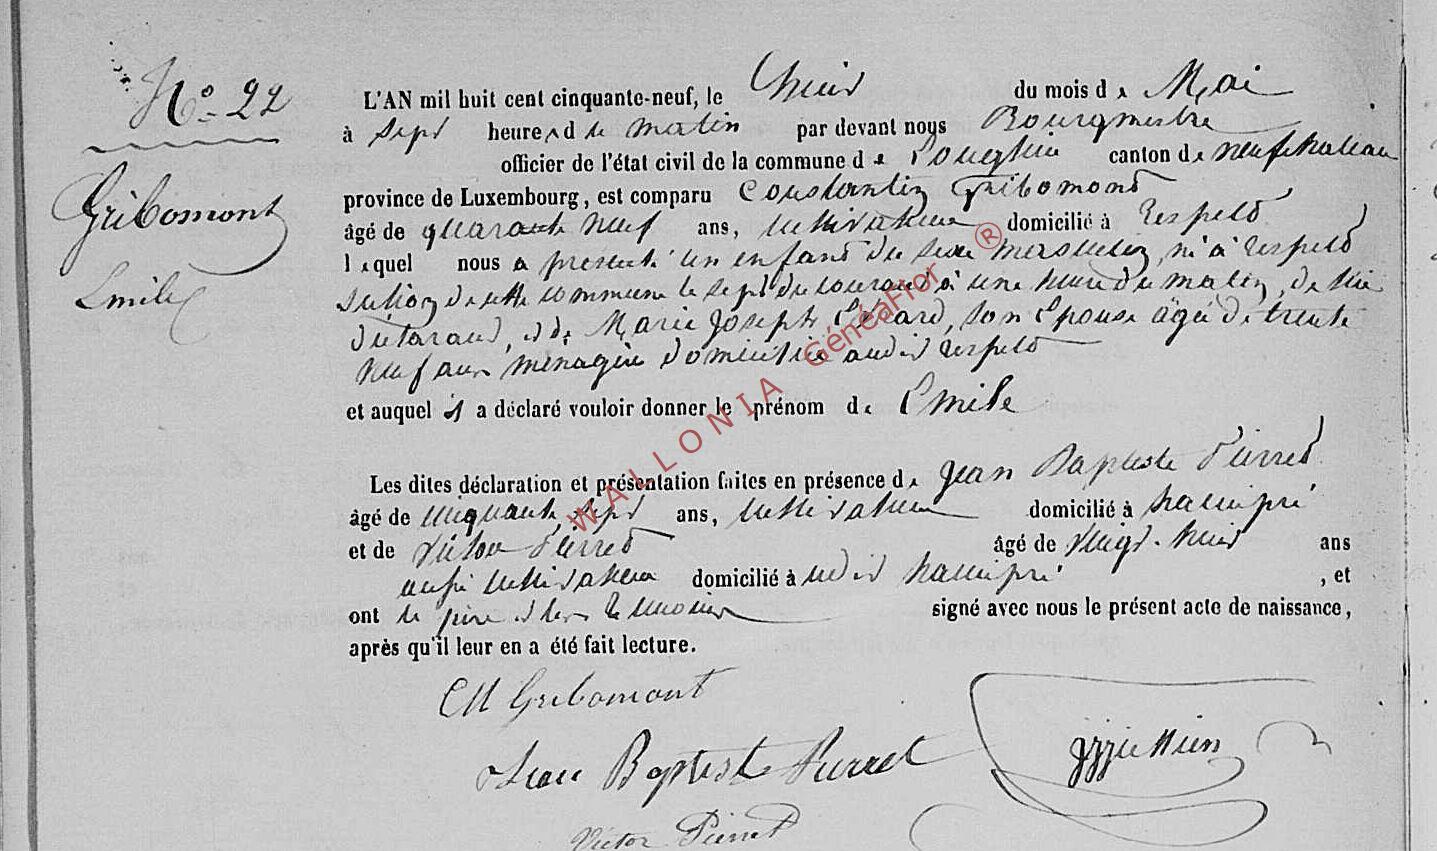 N° 22
Gribomont
Emile
L'AN mil huit cent cinquante-neuf, le huit du mois de Mai
à sept heures du matin par devant nous Bourgmestre
officier de l'état civil de la commune de Longlier canton de neufchateau
province de Luxembourg, est comparu Constantin Gribomont
âgé de quarante neuf ans, cultivateur domicilié à Respelt
lequel nous a présenté un enfant du sexe masculin, né à Respelt
section de cette commune le sept du courant à une heure du matin, de lui
déclarant, et de Marie Joseph Gérard, son épouse âgée de trente
neuf ans ménagère domiciliée audit Respelt
et auquel il a déclaré vouloir donner le prénom de Emile
Les dites déclaration et présentation faites en présence de Jean Baptiste Pierret
âgé de cinquante sept ans, cultivateur domicilié à hamipré
et de Victor Pierret âgé de vingt-huit ans
aussi cultivateur domicilié à udit hamipré , et
ont le père et les témoins signé avec nous le présent acte de naissance,
après qu'il leur en a été fait lecture.
CH Gribomont
Jean Baptiste Pierret
Victor Pierret
WALLONIA GénéaFlor ®